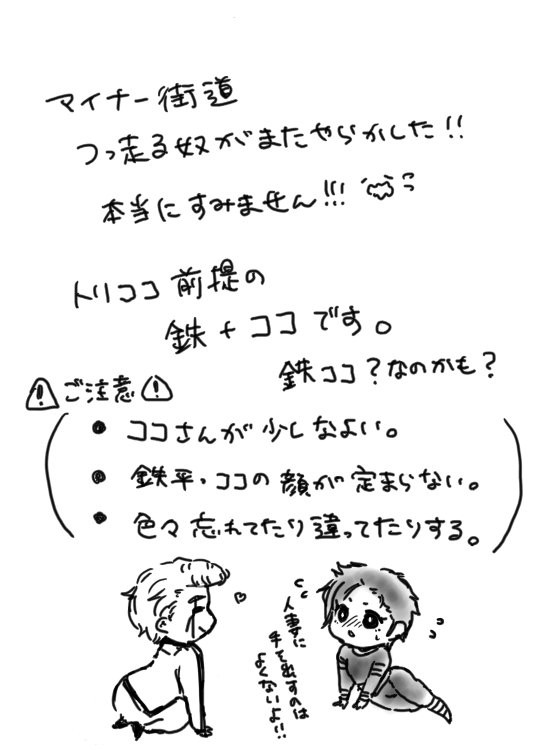 マイナー街道
つっ走る奴がまたやらかした!!
本当にすみません!!!
トリココ前提の
鉄+ココです。
鉄ココ?なのかも?
ご注意
• ココさんが少しなよい。
• 鉄平・ココの顔が定まらない。
• 色々忘れてたり違ってたりする。
人妻に
手を出すのは
よくないよ!!